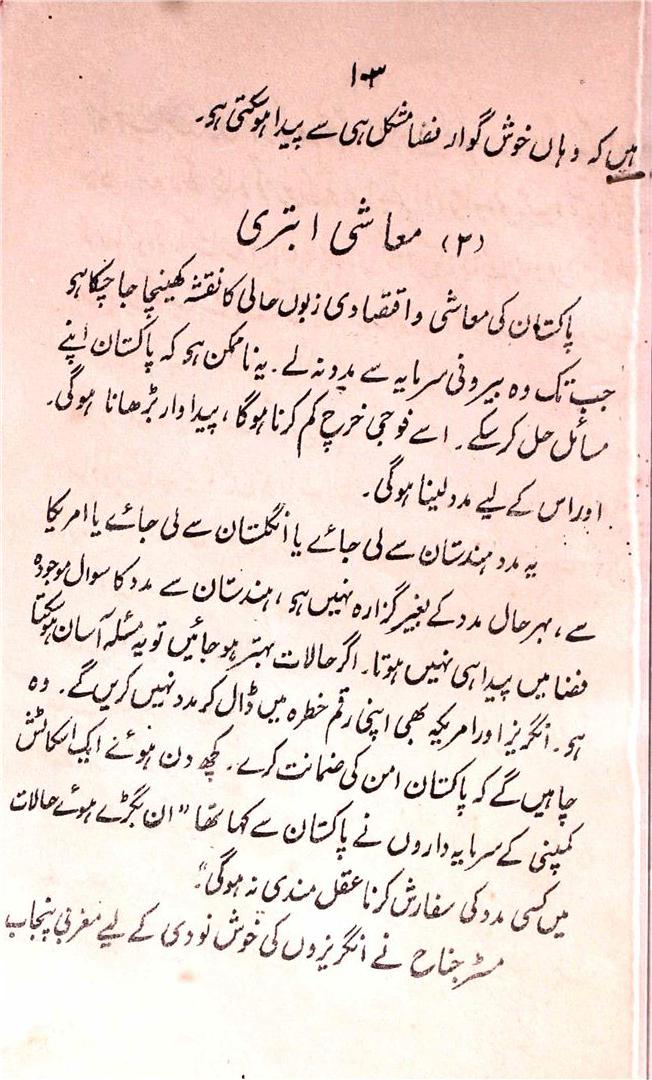 ۱۰۳
ہیں کہ وہاں خوش گوار فضا مشکل ہی سے پیدا ہوسکتی ہو۔
(۲) معاشی ابتری
پاکستان کی معاشی و اقتصادی زبوں حالی کا نقشہ کھینچا جا چکا ہو
جب تک وہ بیرونی سرمایہ سے مدد نہ لے۔ یہ نا ممکن ہو کہ پاکستان اپنے
مسائل حل کر سکے۔ اسے فوجی خرچ کم کرنا ہوگا، پیداوار بڑھانا ہوگی۔
اور اس کے لیے مدد لینا ہوگی۔
یہ مدد ہندستان سے لی جائے یا انگلستان سے لی جائے یا امریکا
سے، بہر حال مدد کے بغیر گزارہ نہیں ہو، ہندستان سے مدد کا سوال موجودہ
فضا میں پیدا ہی نہیں ہوتا۔ اگر حالات بہتر ہو جائیں تو یہ مسئلہ آسان ہوسکتا
ہو۔ انگریز اور امریکہ بھی اپنی رقم خطرہ میں ڈال کر مدد نہیں کریں گے۔ وہ
چاہیں گے کہ پاکستان امن کی ضمانت کرے۔ کچھ دن ہوئے ایک اسکاٹش
کمپنی کے سرمایہ داروں نے پاکستان سے کہا تھا "ان بگڑے ہوئے حالات
میں کسی مدد کی سفارش کرنا عقل مندی نہ ہوگی"۔
مسٹر جناح نے انگریزوں کی خوش نودی کے لیے مغربی پنجاب